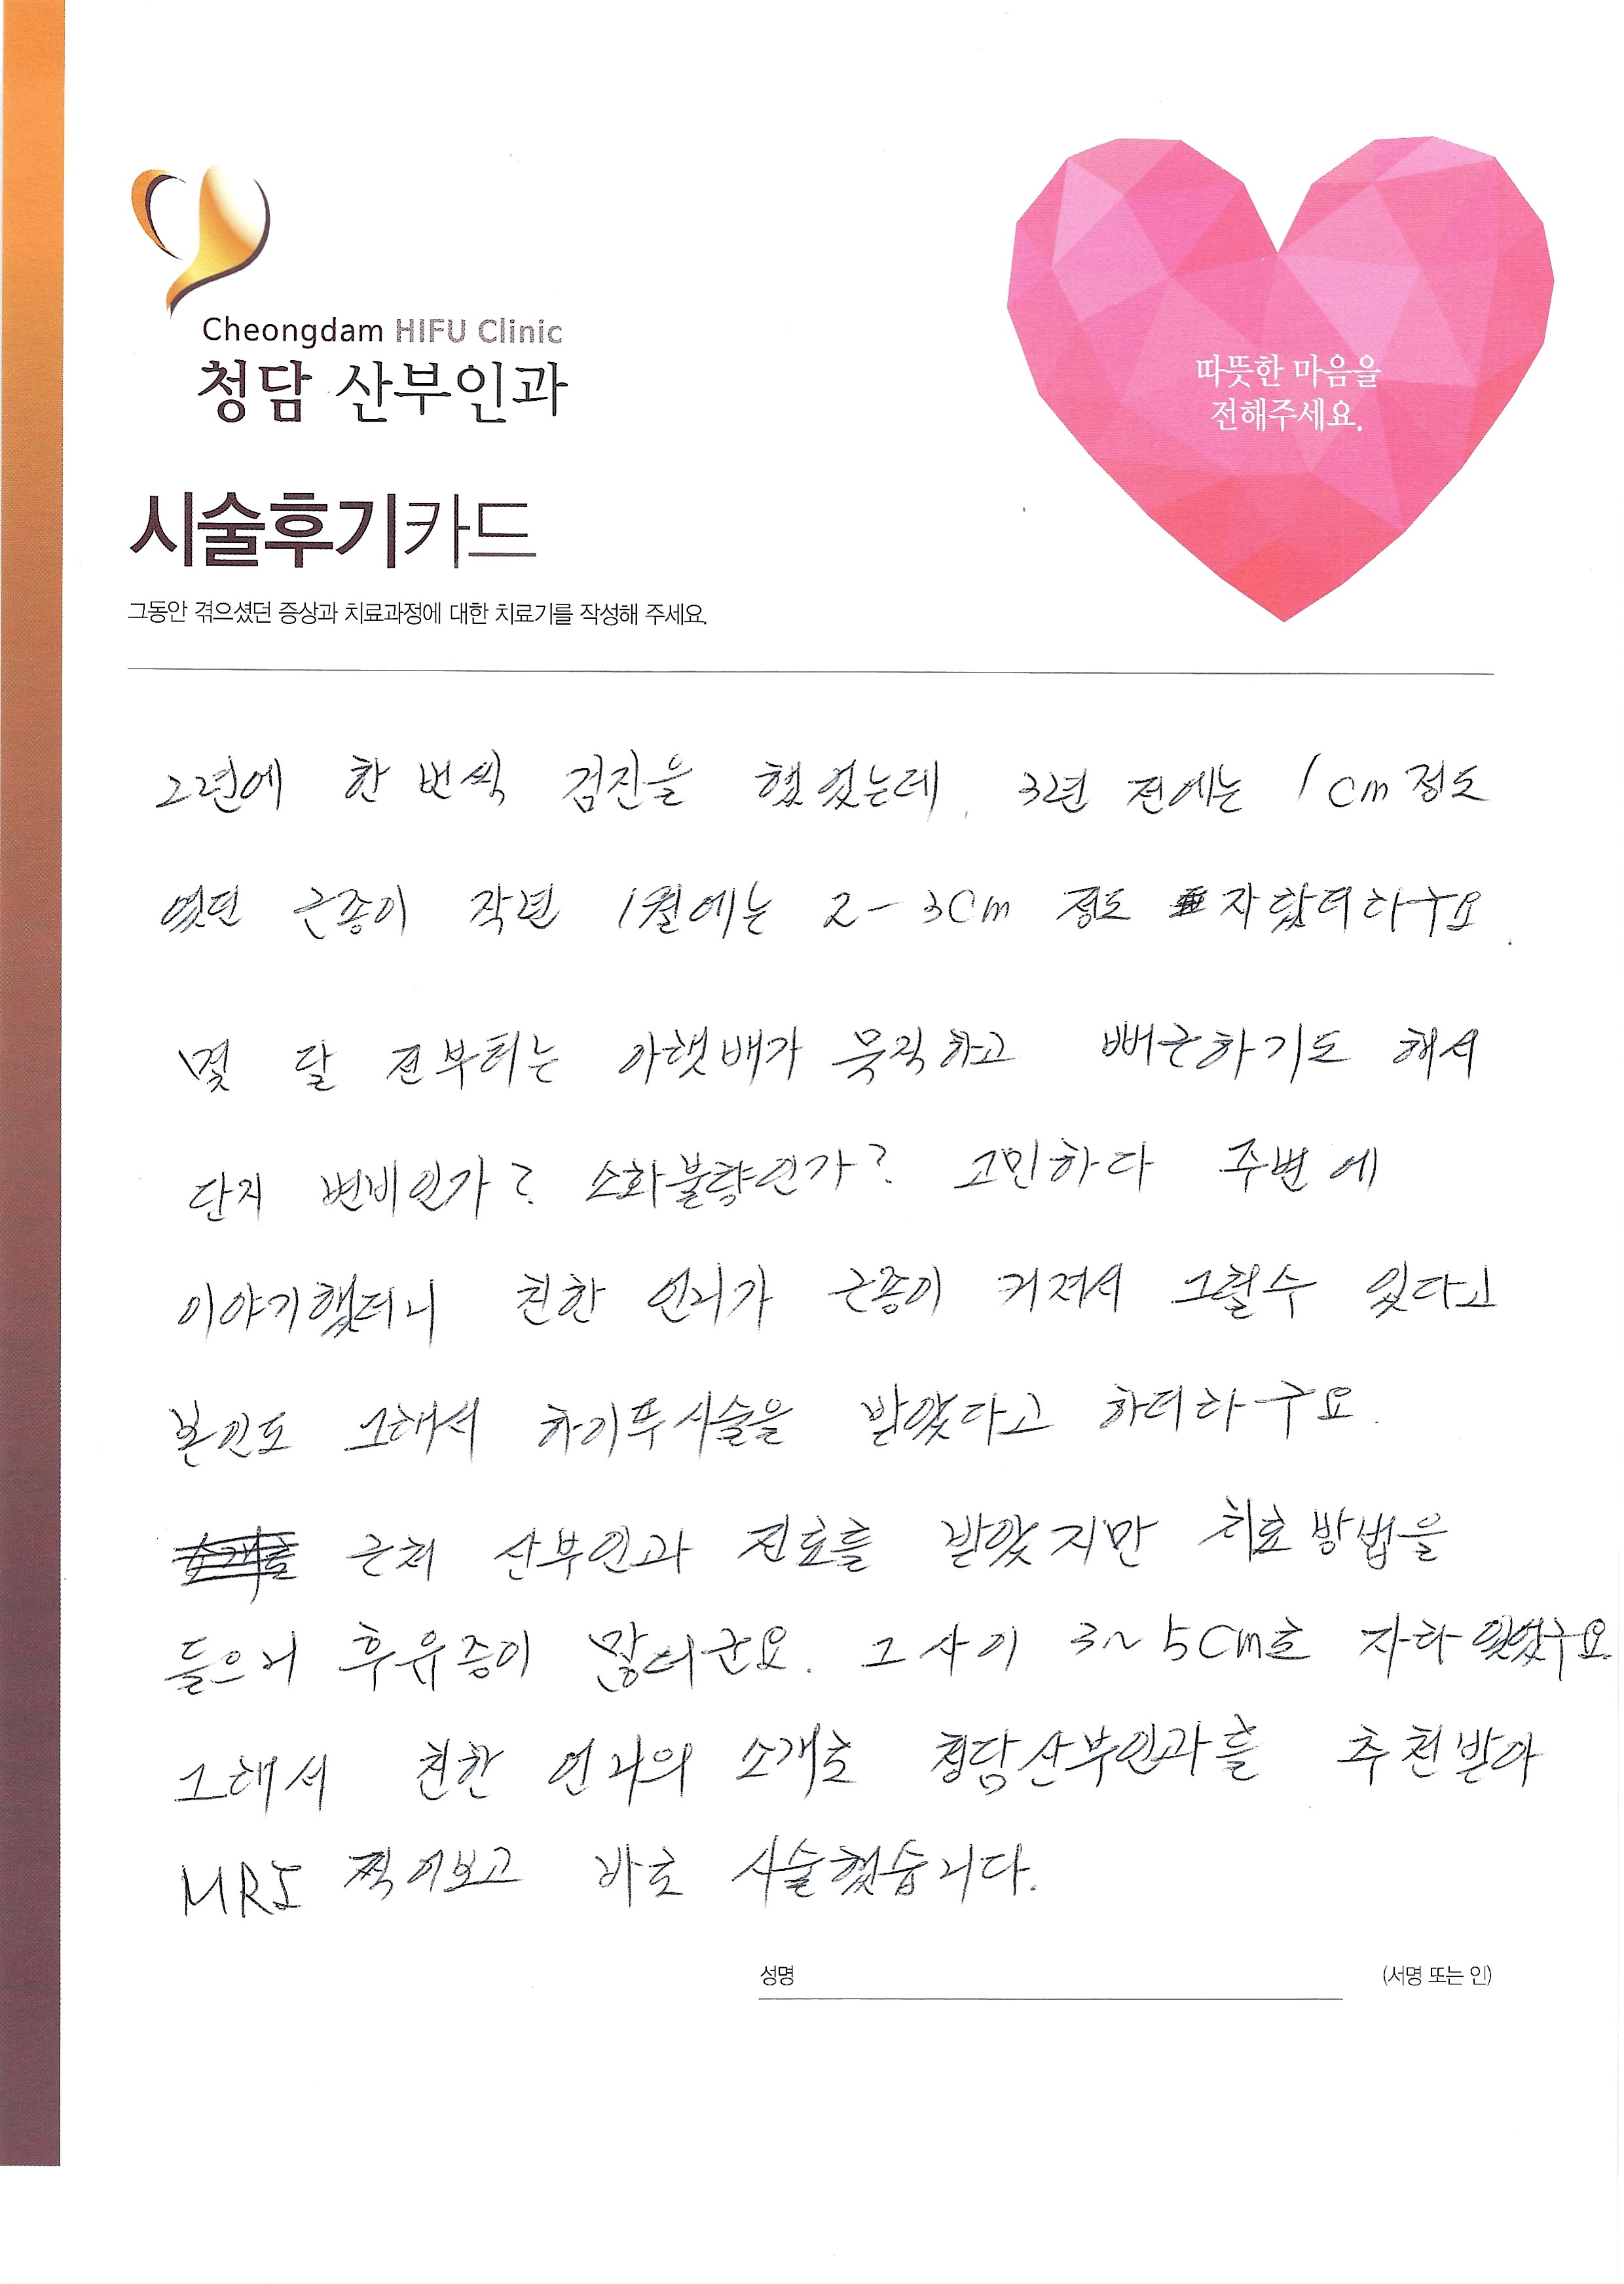 Cheongdam HIFU Clinic
청담 산부인과
따뜻한 마음을
전해주세요.
시술후기카드
그동안 겪으셨던 증상과 치료과정에 대한 치료기를 작성해 주세요.
2년에 한 번씩 검진을 했었는데, 3년 전에는 1cm 정도
였던 근종이 작년 1월에는 2-3cm 정도 자랐더라구요.
몇 달 전부터는 아랫배가 묵직하고 뻐근하기도 해서
단지 변비인가? 소화불량인가? 고민하다 주변에
이야기했더니 친한 언니가 근종이 커져서 그럴수 있다고
본인도 그래서 하이푸시술을 받았다고 하더라구요.
근처 산부인과 진료를 받았지만 치료방법을
들으니 후유증이 많더군요. 그 사이 3~5cm로 자라있었구요.
그래서 친한 언니의 소개로 청담산부인과를 추천받아
MRI 찍어보고 바로 시술했습니다.
성명 (서명 또는 인)